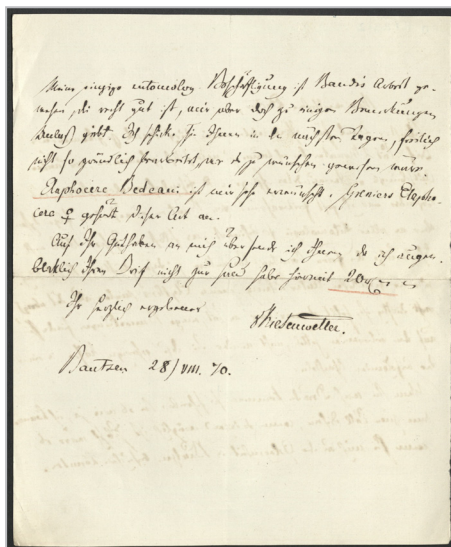 Meine einzige entomolog. Beschäftigung ist Baudis Arbeit ge-
wesen, die recht gut ist, mir aber doch zu einigen Bemerkungen
Anlaß giebt. Ich schicke sie Ihnen in den nächsten Tagen, freilich
nicht so gründlich bearbeitet, wie es zu wünschen gewesen wäre.
Elaphocera Bedeaui ist mir sehr erwünscht. Greniers Elapho-
cera ♀ gehört dieser Art an.
Auf Ihr Guthaben an mich übersende ich Ihnen, da ich augen-
blicklich Ihren Brief nicht zur Hand habe hiermit 20
Ihr herzlich ergebener
vKiesenwetter.
Bautzen 28/VIII. 70.